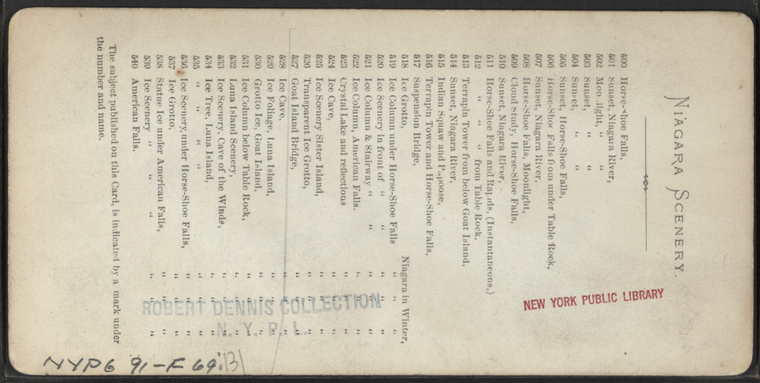 NIAGARA SCENERY.
600 Horse-shoe Falls,
601 Sunset, Niagara River,
602 Moonlight, " "
503 Sunset, " "
504 Sunset, " "
505 Sunset, Horse-Shoe Falls,
506 Horse-Shoe Falls from under Table Rock,
507 Sunset, Niagara River,
508 Horse-Shoe Falls, Moonlight,
509 Cloud Study, Horse-Shoe Falls,
510 Sunset, Niagara River,
511 Horse-Shoe Falls and Rapids, (Instantaneous,)
512 " " from Table Rock,
513 Terrapin Tower from below Goat Island,
514 Sunset, Niagara River,
515 Indian Squaw and Papoose,
516 Terrapin Tower and Horse-Shoe Falls,
517 Suspension Bridge,
518 Ice Grotto, Niagara in Winter,
519 Ice Column under Horse-Shoe Falls " "
520 Ice Scenery in front of " " "
521 Ice Column & Stairway " " "
522 Ice Column, American Falls, " "
523 Crystal Lake and reflections " "
524 Ice Cave, " "
525 Ice Scenery Sister Island, " "
526 Transparent Ice Grotto, " "
527 Goat Island Bridge, " "
528 Ice Cave, " "
529 Ice Foliage, Luna Island, " "
530 Grotto Ice, Goat Island, " "
531 Ice Column below Table Rock, " "
532 Luna Island Scenery, " "
533 Ice Scenery, Cave of the Winds, " "
534 Ice Tree, Luna Island, " "
535 " " " " " "
536 Ice Scenery under Horse-Shoe Falls, " "
537 Ice Grotto, " "
538 Statue Ice under American Falls, " "
539 Ice Scenery " " " " "
540 American Falls, " "
The subject published on this Card, is indicated by a mark under
the number and name.
NEW YORK PUBLIC LIBRARY
ROBERT DENNIS COLLECTION
N. Y. P. L.
NYPG 91-F69:131